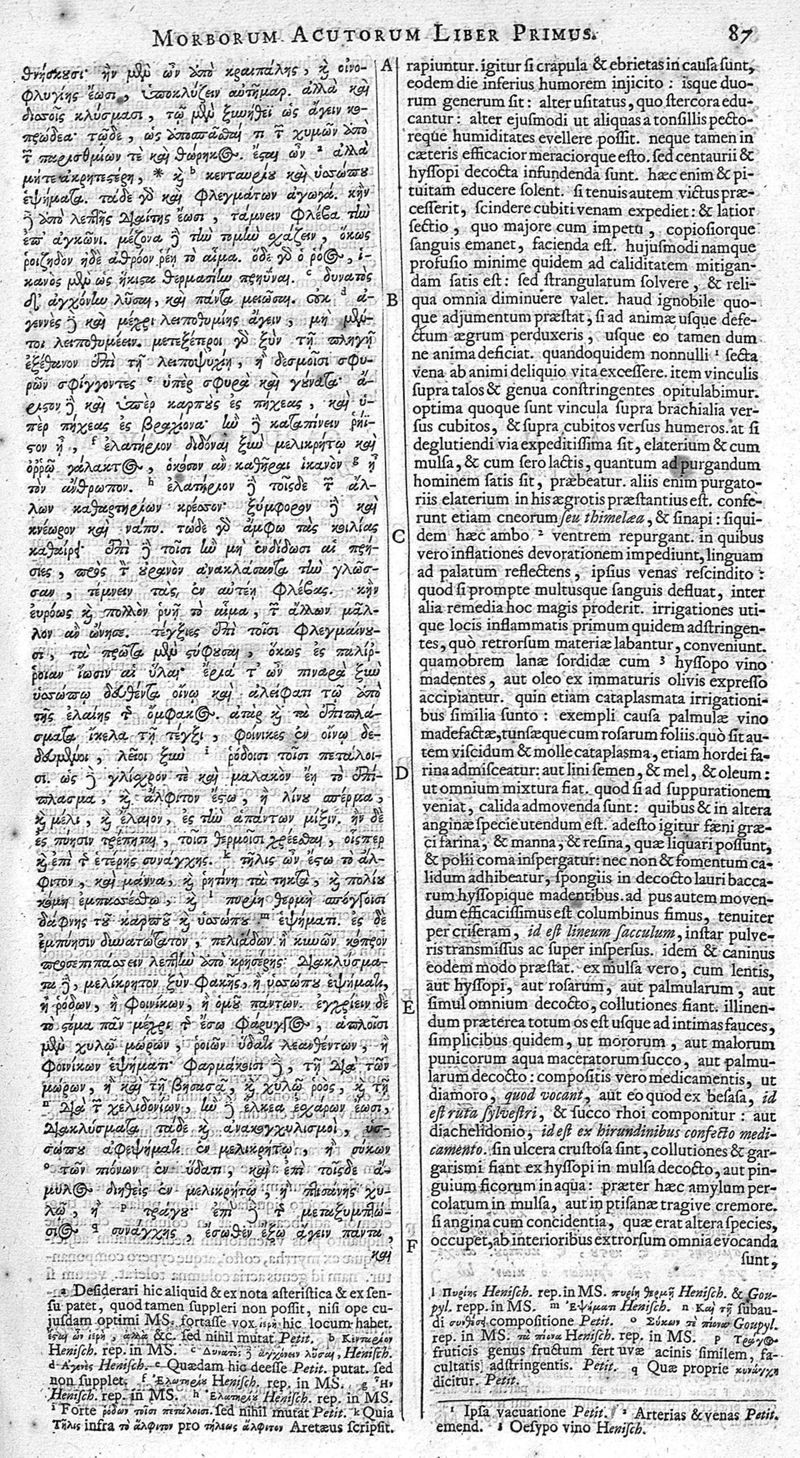 MORBORUM ACUTORUM LIBER PRIMUS.
87
θνήσκουσι· ἢν μὲν ὦν ἀπὸ κραιπάλης, καὶ οἰνο-
φλυγίης ἔωσι, ὑποκλύζειν αὐτῆμαρ. ἀλλὰ καὶ
διατοῖς κλύσμασι, τῷ μὲν ξυνήθεϊ ὡς ἄγειν κο-
πρώδεα· τῷδε, ὡς ἀποσπᾶσθαί τι τῶν χυμῶν ἀπὸ
τῶν παρισθμίων τε καὶ θώρηκος. ἔστω ὦν ² ἀλλὰ
μήτε ἀκρητεστέρη, * καὶ ᵇ κενταυρίου καὶ ὑσσώπου
ἑψήματα. τάδε γὰρ καὶ φλεγμάτων ἀγωγά. κἢν
δὲ ἀπὸ λεπτῆς διαίτης ἔωσι, τάμνειν φλέβα τὴν
ἐπ' ἀγκῶνι. μέζονα δὲ τὴν τομὴν σχάζειν, ὅκως
ῥοιζηδὸν ἠδὲ ἀθρόον ῥέῃ τὸ αἷμα. ὅδε γὰρ ὁ ῥόος, ἱ-
κανὸς μὲν ὡς ἥκιστα θερμασίην πρηῧναι. ᶜ δυνατὸς
δὲ ἀγχόνην λῦσαι, καὶ πάντα μειῶσαι. οὐκ ᵈ ἀ-
γεννὲς δὲ καὶ μέχρι λειποθυμίης ἄγειν, μὴ μέν-
τοι λειποθυμέειν. μετεξέτεροι γὰρ ξὺν τῇ πληγῇ
ἐξέθανον ἐπὶ τῇ λειποψυχίῃ, ἢ δεσμοῖσι σφυ-
ρῶν σφίγγοντες ᵉ ὑπὲρ σφυρὰ καὶ γούνατα· ἄ-
ριστον δὲ καὶ ὑπὲρ καρποὺς ἐς πήχεας, καὶ ὑ-
πὲρ πήχεας ἐς βραχίονα· ἢν δὲ καταπίνειν ῥηΐ-
τον ᾖ, ᶠ ἐλατήριον διδόναι ξὺν μελικρήτῳ καὶ
ὀῤῥῷ γάλακτος, ὁκόσον ἂν καθῆραι ἱκανὸν ᵍ ᾖ
τὸν ἄνθρωπον. ʰ ἐλατήριον δὲ τοῖσδε τῶν ἄλ-
λων καθαρτηρίων κρέσσον· ξύμφορον δὲ καὶ
κνέωρον καὶ νάπυ. τώδε γὰρ ἄμφω τὰς κοιλίας
καθαίρει. ἐπὶ δὲ τοῖσι ἢν μὴ ἐνδιδῶσι αἱ πρή-
σιες, πρὸς τὸν οὐρανὸν ἀνακλάσαντα τὴν γλῶσ-
σαν, τέμνειν τὰς ἐν αὐτέῃ φλέβας. κἢν
εὐρόως καὶ πολλὸν ῥυῇ τὸ αἷμα, τῶν ἄλλων μᾶλ-
λον ἂν ὤνησε. τέγξιες ἐπὶ τοῖσι φλεγμαίνου-
σι, τὰ πρῶτα μὲν στύφουσαι, ὅκως ἐς παλίῤ-
ροιαν ἴωσιν αἱ ὗλαι· ἔρια τ' ὦν πιναρὰ ξὺν
ὑσσώπῳ δευθέντα οἴνῳ καὶ ἀλείφατι τῷ ἀπὸ
τῆς ἐλαίης τῆς ὄμφακος. ἀτὰρ καὶ τὰ ἐπιπλά-
σματα ἴκελα τῇ τέγξι, φοίνικες ἐν οἴνῳ δε-
δευμένοι, λεῖοι ξὺν ⁱ ῥόδοισι τοῖσι πετάλοι-
σι. ὡς δὲ γλίσχρον τε καὶ μαλακὸν ἔῃ τὸ ἐπί-
πλασμα, καὶ ἄλφιτον ἔστω, ἢ λίνου σπέρμα,
καὶ μέλι, καὶ ἔλαιον, ἐς τὴν ἁπάντων μίξιν. ἢν δὲ
ἐς πύησιν τρέπηται, τοῖσι θερμοῖσι χρέεσθαι, οἷσπερ
καὶ ἐπὶ τῆς ἑτέρης συνάγχης. ᵏ τῆλις ὦν ἔστω τὸ ἄλ-
φιτον, καὶ μάννα, καὶ ῥητίνη τὰ τηκτὰ, καὶ πολίου
κόμη ἐμπασσέσθω, καὶ ˡ πυρίη θερμὴ σπόγγοισι
δάφνης τοῦ καρποῦ καὶ ὑσσώπου ᵐ ἑψήματι. ἐς δὲ
ἐμπύησιν δυνατώτατον, πελειάδων ἢ κυνῶν κόπρον
προσεπιπάσσειν λεπτὴν ἀπὸ κρησέρης· διακλύσμα-
τα δὲ, μελίκρητον ξὺν φακῆς, ἢ ὑσσώπου ἑψήματι,
ἢ ῥόδων, ἢ φοινίκων, ἢ ὁμοῦ πάντων. ἐγχρίειν δὲ
τὸ στόμα πᾶν μέχρι τῆς ἔσω φάρυγγος, ἁπλοῖσι
μὲν χυλῷ μώρων, ῥοιῶν ὕδατι λεανθέντων, ἢ
φοινίκων ἑψήματι· φαρμάκοισι δὲ, τῇ διὰ τῶν
μώρων, ἢ καὶ τῇ βησασᾷ, καὶ χυλῷ ῥοὸς, καὶ τῇ
ⁿ διὰ τῶν χελιδονίων, ἢν δὲ ἕλκεα ἐσχαρῶν ἔωσι,
διακλύσματα τάδε καὶ ἀνακογχυλισμοὶ, ὑσ-
σώπου ἀφεψήματι ἐν μελικρήτῳ, ἢ σύκων
ᵒ τῶν πιόνων ἐν ὕδατι, καὶ ἐπὶ τοῖσδε ἄ-
μυλος διηθεὶς ἐν μελικρήτῳ, ἢ πτισάνης χυ-
λῷ, ἢ ᵖ τράγου ἐπὶ δὲ τῆς μεταξυμπτώ-
σιος ᑫ συνάγχης, ἔσωθεν ἔξω ἄγειν πάντα,
καὶ
A
B
C
D
E
F
rapiuntur. igitur si crapula & ebrietas in causa sunt,
eodem die inferius humorem injicito : isque duo-
rum generum sit : alter usitatus, quo stercora edu-
cantur : alter ejusmodi ut aliquas a tonsillis pecto-
reque humiditates evellere possit. neque tamen in
cæteris efficacior meraciorque esto. sed centaurii &
hyssopi decocta infundenda sunt. hæc enim & pi-
tuitam educere solent. si tenuis autem victus præ-
cesserit, scindere cubiti venam expediet : & latior
sectio, quo majore cum impetu, copiosiorque
sanguis emanet, facienda est. hujusmodi namque
profusio minime quidem ad caliditatem mitigan-
dam satis est : sed strangulatum solvere, & reli-
qua omnia diminuere valet. haud ignobile quo-
que adjumentum præstat, si ad animæ usque defe-
ctum ægrum perduxeris, usque eo tamen dum
ne anima deficiat. quandoquidem nonnulli ¹ secta
vena ab animi deliquio vita excessere. item vinculis
supra talos & genua constringentes opitulabimur.
optima quoque sunt vincula supra brachialia ver-
sus cubitos, & supra cubitos versus humeros. at si
deglutiendi via expeditissima sit, elaterium & cum
mulsa, & cum sero lactis, quantum ad purgandum
hominem satis sit, præbeatur. aliis enim purgato-
riis elaterium in his ægrotis præstantius est. confe-
runt etiam cneorum seu thimelæa, & sinapi : siqui-
dem hæc ambo ² ventrem repurgant. in quibus
vero inflationes devorationem impediunt, linguam
ad palatum reflectens, ipsius venas rescindito :
quod si prompte multusque sanguis defluat, inter
alia remedia hoc magis proderit. irrigationes uti-
que locis inflammatis primum quidem adstringen-
tes, quò retrorsum materiæ labantur, conveniunt.
quamobrem lanæ sordidæ cum ³ hyssopo vino
madentes, aut oleo ex immaturis olivis expresso
accipiantur. quin etiam cataplasmata irrigationi-
bus similia sunto : exempli causa palmulæ vino
madefactæ, tunsæque cum rosarum foliis. quò sit au-
tem viscidum & molle cataplasma, etiam hordei fa-
rina admisceatur : aut lini semen, & mel, & oleum :
ut omnium mixtura fiat. quod si ad suppurationem
veniat, calida admovenda sunt : quibus & in altera
anginæ specie utendum est. adesto igitur fæni græ-
ci farina, & manna, & resina, quæ liquari possunt,
& polii coma inspergatur : nec non & fomentum ca-
lidum adhibeatur, spongiis in decocto lauri bacca-
rum hyssopique madentibus. ad pus autem moven-
dum efficacissimus est columbinus fimus, tenuiter
per criseram, id est lineum sacculum, instar pulve-
ris transmissus ac super inspersus. idem & caninus
eodem modo præstat. ex mulsa vero, cum lentis,
aut hyssopi, aut rosarum, aut palmularum, aut
simul omnium decocto, collutiones fiant. illinen-
dum præterea totum os est usque ad intimas fauces,
simplicibus quidem, ut mororum, aut malorum
punicorum aqua maceratorum succo, aut palmu-
larum decocto : compositis vero medicamentis, ut
diamoro, quod vocant, aut eo quod ex besasa, id
est ruta sylvestri, & succo rhoi componitur : aut
diachelidonio, id est ex hirundinibus confecto medi-
camento. sin ulcera crustosa sint, collutiones & gar-
garismi fiant ex hyssopi in mulsa decocto, aut pin-
guium ficorum in aqua : præter hæc amylum per-
colatum in mulsa, aut in ptisanæ tragive cremore.
si angina cum concidentia, quæ erat altera species,
occupet, ab interioribus extrorsum omnia evocanda
sunt,
a Desiderari hic aliquid & ex nota asteristica & ex sen-
su patet, quod tamen suppleri non possit, nisi ope cu-
jusdam optimi MS. fortasse vox ἱερὴ hic locum habet.
ἔστω ὦν ἱερὴ, ἀλλὰ &c. sed nihil mutat Petit. b Κενταυρίου
Henisch. rep. in MS. c Δυνατὸς δὲ ἀγχόνην λῦσαι, Henisch.
d Ἀγενὲς Henisch. e Quædam hic deesse Petit. putat. sed
non supplet. f Ἐλατηρίου Henisch. rep. in MS. g Ἢν
Henisch. rep. in MS. h Ἐλατηρίου Henisch. rep. in MS.
i Forte ῥόδων τοῖσι πετάλοισι. sed nihil mutat Petit. k Quia
Τῆλις infra τὸ ἄλφιτον pro τήλιος ἄλφιτον Aretæus scripsit.
l Πυρίης Henisch. rep. in MS. πυρίῃ θερμῇ Henisch. & Gou-
pyl. repp. in MS. m Ἑψήματι Henisch. n Καὶ τῇ subau-
di συνθέσῃ compositione Petit. o Σύκων τὰ πίονα Goupyl.
rep. in MS. τὰ πίονα Henisch. rep. in MS. p Τράγος
fruticis genus fructum fert uvæ acinis similem, fa-
cultatis adstringentis. Petit. q Quæ proprie κυνάγχη
dicitur. Petit.
1 Ipsa vacuatione Petit. 2 Arterias & venas Petit.
emend. 3 Oesypo vino Henisch.